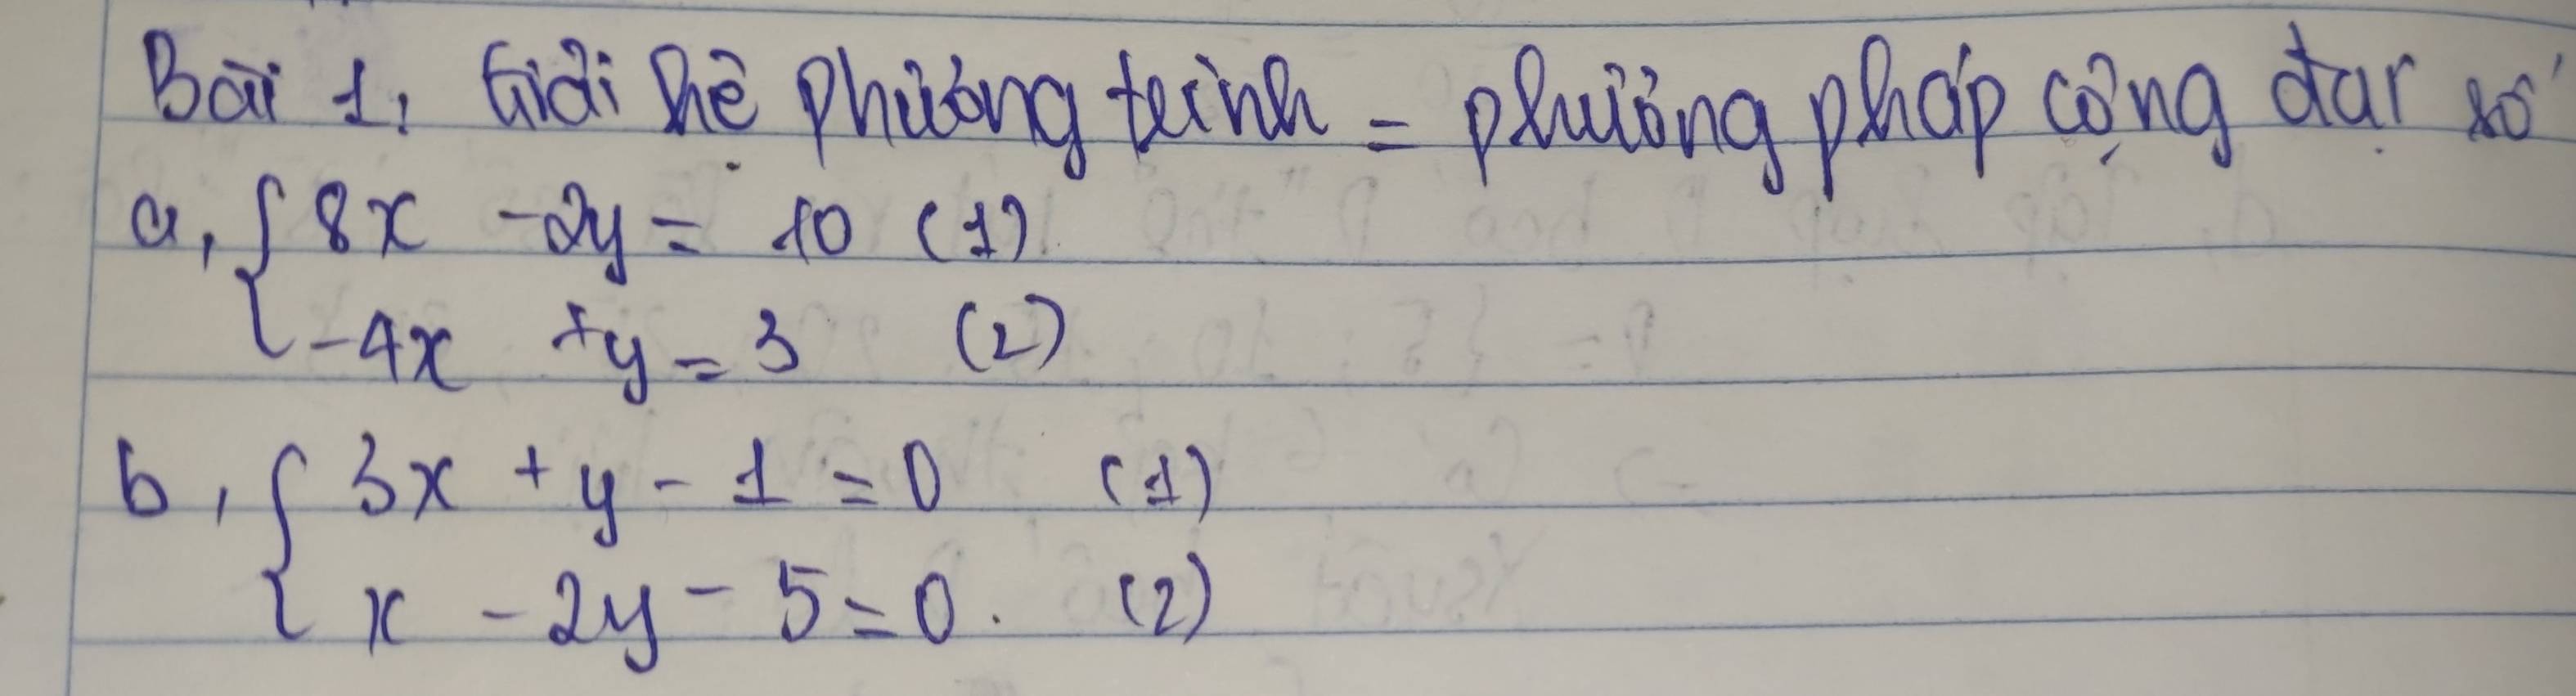 Bài 1, Giải hệ phương trình = phương pháp cộng đại số
a, { 8x - 2y = 10 (1)
-4x + y = 3 (2)
b, { 3x + y - 1 = 0 (1)
x - 2y - 5 = 0. (2)